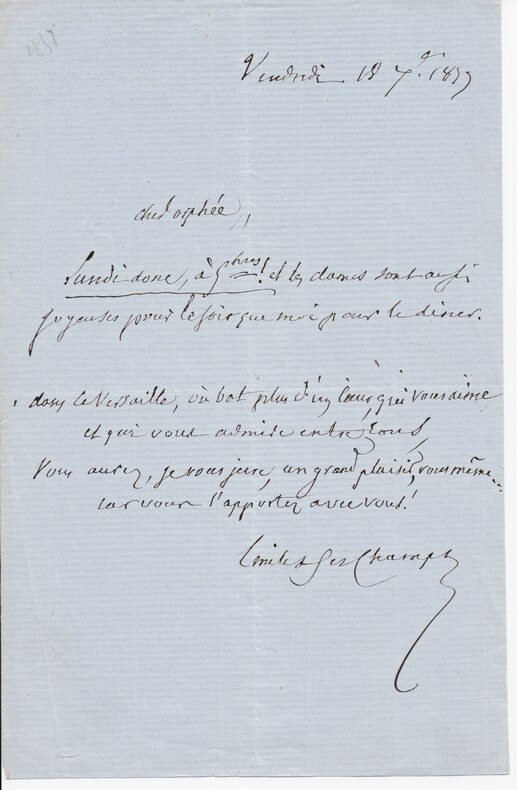 1857
Vendredi 18 7bre. 1857
cher orphée,
Lundi donc, à 5 hres! et les dames sont aussi
joyeuses pour le soir que moi pour le diner.
dans ce Versaille, où bat plus d'un cœur qui vous aime
et qui vous admire entre tous,
Vous aurez, je vous jure, un grand plaisir, vous même...
car vous l'apportez avec vous!
Emile DesChamps